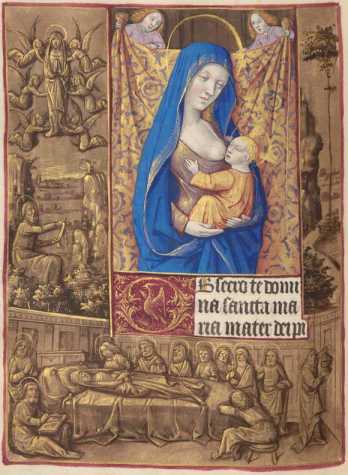 Obsecro te domi
na sancta ma
ria mater dei pi